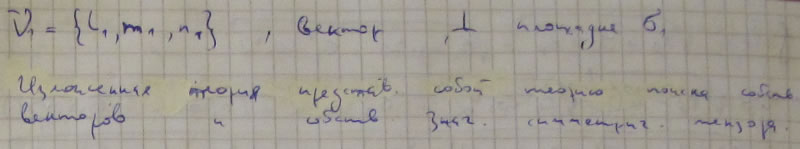 ν̄₁ = {l₁, m₁, n₁}, вектор, ⊥ площадке σ₁
Изложенная теория представ. собой теорию поиска собств.
векторов и собств. знач. симметрич. тензора.